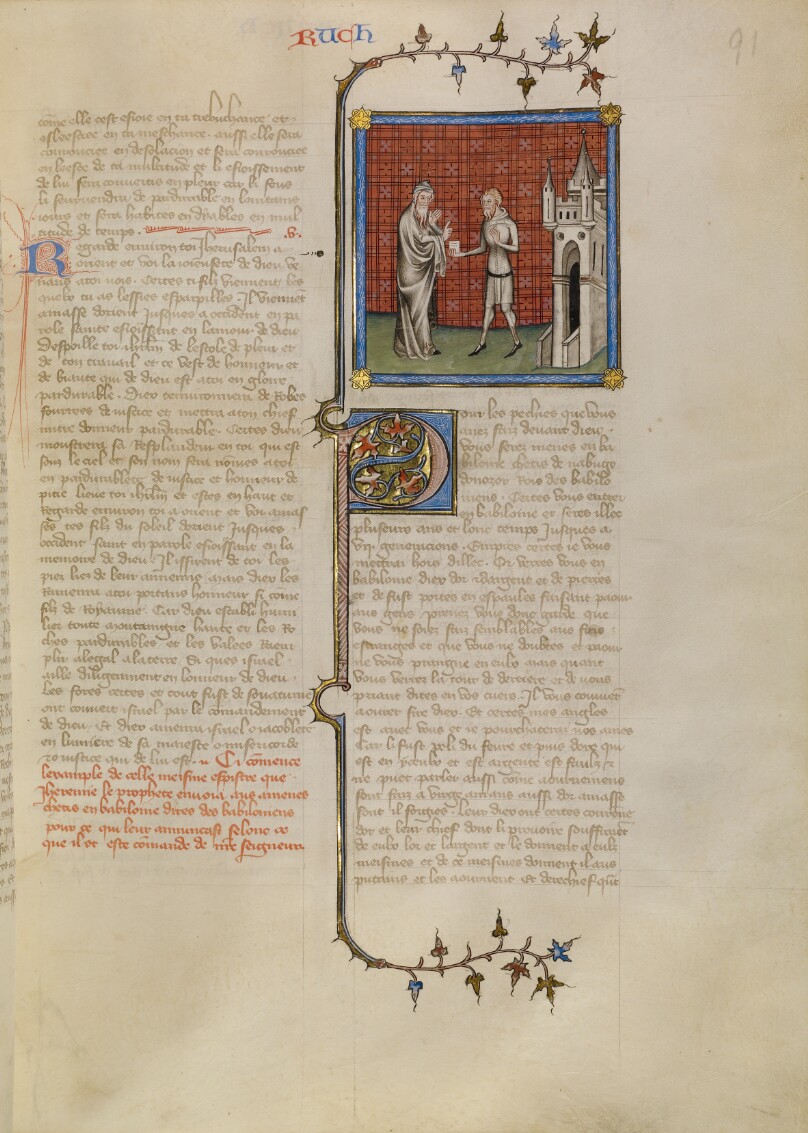 Ruch
91
come elle cest esioie en ta trebuchance et
esleesce en ta meschance aussi elle sera
en desolacion et sera couroucee
en leesce de ta multitude et li esioissement
de lui sera convertis en pleur car li feus
li seurvendra de pardurable en lointains
iours et sera habites en dyables en mul
titude de temps . v.
Regarde environ toi iherusalem a
orient et voi la ioieusete de dieu ve
nans a toi nois . Certes ti filz viennent les
quelx tu as lessies esparpilles . Il viennent
amasse dorient iusques a occident en pa
role sainte esioissent en lamour de dieu
Despoille toi iherusalem de lestole de pleur et
de ton travail et te vest de honneur et
de biaute qui de dieu est a toi en gloire
pardurable . Dieu tenvironnera de robes
fourrees de iustice et mettra a ton chief
mitre donneur pardurable . Certes dieu
monsterra sa resplandeur en toi qui est
souz le ciel et son nom sera nommes a toi
en pardurablete de iustice et honneur de
pitie lieve toi iherusalem et estes en haut et
Regarde environ toi a orient et voi amas
ses tes filz du soleil dorient iusques
occident saint en parole esioissant en la
memoire de dieu . Il issirent de toi les
piez liez de leur anemis mais dieu les
Ramenra a toi portans honneur si come
filz de royaume . Car dieu establi humi
lier toute montaingne haute et les Ro
ches pardurables et les valees
plir a legal a la terre . Si ques israel
aille diligemment en lonneur de dieu .
Les fores certes et tout fust de
ont couvert israel par le comandement
de dieu . Et dieu amenra israel o iocoblete
en lumiere de sa maieste o misericorde
et o iustice qui de lui est . Ci comence
lexample de celle meisme espistre que
Iheremie le prophete envoia aus amenes
chetis en babiloine dites des babiloniens
pour ce qui leur annuncast selonc ce
que il est este comande de nostre seigneur
Pour les pechies que vous
avez faiz devant dieu .
vous serez menes en ba
biloine chetis de nabugo
donozor Rois des babilo
niens . Certes vous entrer
en babiloine et seres illec
plusieurs ans et lonc temps iusques a
vii. generacions . Empres certes ie vous
mettrai hors dillec . Or verres vous en
babiloine diex dor et dargent et de pierres
et de fust portes en espaules faisant paour
aus gens prenez vous donc garde que
vous ne soiez faiz semblables aus faiz
estranges et que vous ne doubtes et paour
ne vous prangne en eulx mais quant
vous verres la tour de derriere et de vous
priant dites en vos cuers . Il vous couvient
aourer sire diex . Et certes mes angles
est avec vous et ie pourchacerai vos ames
Car li fust poli du fevre et puis dorez qui
est en yceulx et est argente est faulz et
ne puet parler aussi come aournemens
sont faiz a virge amans aussi dor amasse
sont il forgies . Leur diex ont certes couronne
dor et leur chief dont li prouoire
de eulx lor et largent et le donnent a eulz
meismes et de ce meismes donnent il aus
putains et les aournent Et derechief quant